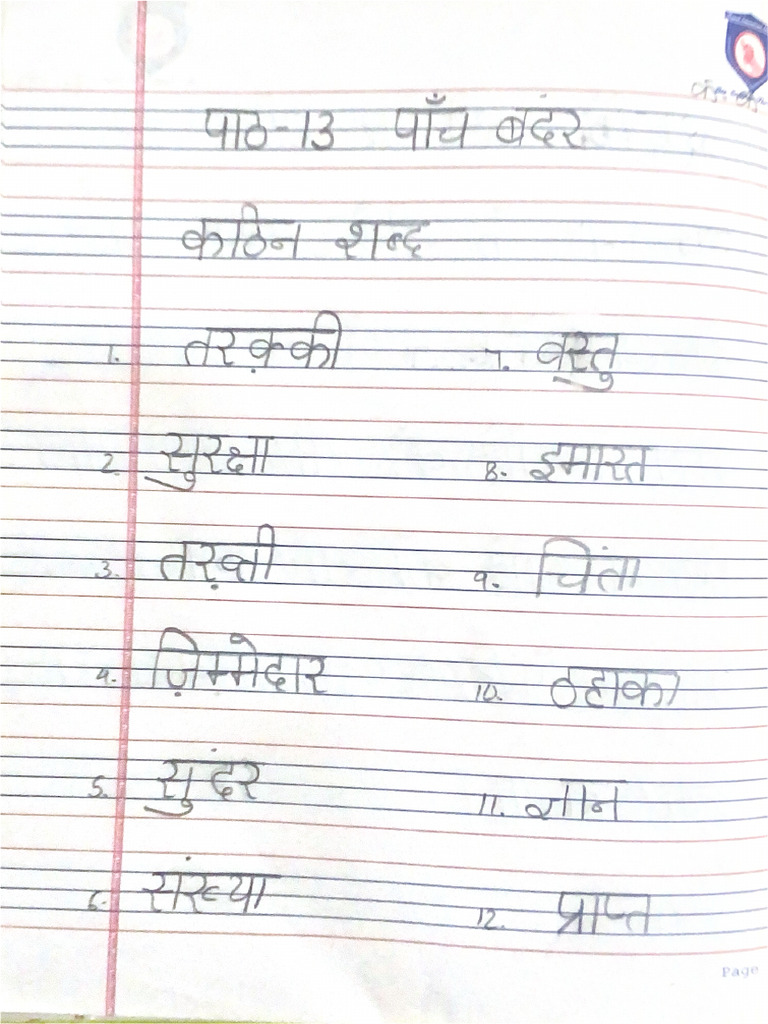 पाठ-13 पाँच बंदर
कठिन शब्द
1. तरक़्की 7. वस्तु
2. सुरक्षा 8. इमारत
3. तख़्ती 9. चिंता
4. ज़िम्मेदार 10. ठहाका
5. सुंदर 11. शान
6. संख्या 12. प्राप्त
Page